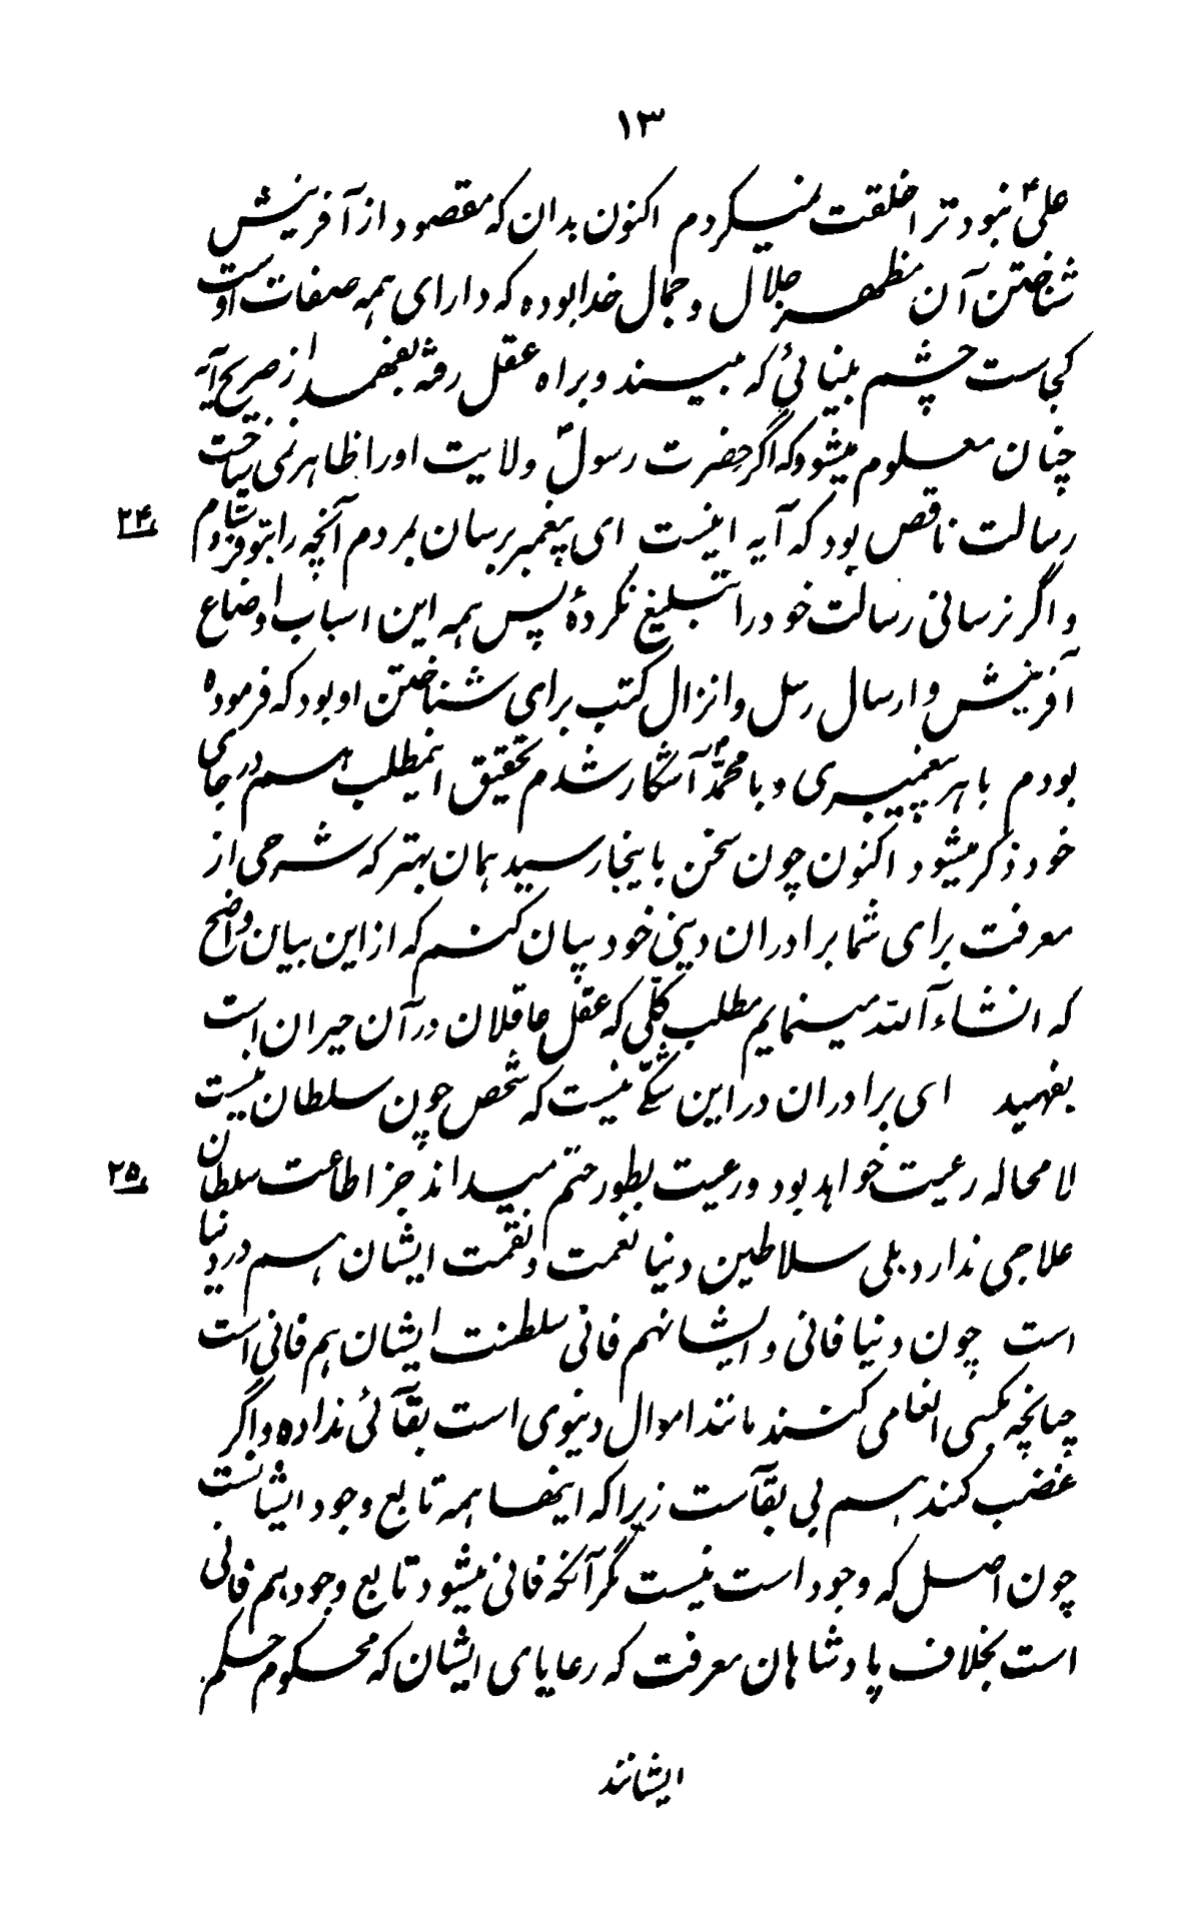 ۱۳
علی ع نبود ترا خلقت نمیکردم اکنون بدان که مقصود از آفرینش
شناختن آن مظهر جلال و جمال خدا بوده که دارای همه صفات اوست
کجاست چشم بینائی که ببیند و براه عقل رفته بفهمد از صریح آیه
چنان معلوم میشود که اگر حضرت رسول ص ولایت او را ظاهر نمی ساخت
رسالت ناقص بود که آیه اینست ای پیغمبر برسان بمردم آنچه را بتو فرستادم
۲۴
و اگر نرسانی رسالت خود را تبلیغ نکردهٔ پس همه این اسباب اوضاع
آفرینش و ارسال رسل و انزال کتب برای شناختن او بود که فرموده
بودم با هر پیغمبری و با محمّد ص آشکار شدم تحقیق اینمطلب هم در جای
خود ذکر میشود اکنون چون سخن باینجا رسید همان بهتر که شرحی از
معرفت برای شما برادران دینی خود بیان کنم که از این بیان واضح
که انشاءالله مینمایم مطلب کلّی که عقل عاقلان در آن حیران است
بفهمید ای برادران در این شکّی نیست که شخص چون سلطان نیست
لامحاله رعیت خواهد بود و رعیت بطور حتم میداند جز اطاعت سلطان
۲۵
علاجی ندارد بلی سلاطین دنیا نعمت و نقمت ایشان هم در دنیا
است چون دنیا فانی و ایشانهم فانی سلطنت ایشان هم فانی است
چنانچه بکسی انعامی کنند مانند اموال دنیوی است بقآئی نداده و اگر
غضب کنند هم بی بقآست زیرا که اینها همه تابع وجود ایشانست
چون اصل که وجود است نیست مگر آنکه فانی میشود تابع وجود هم فانی
است بخلاف پادشاهان معرفت که رعایای ایشان که محکوم حکم
ایشانند